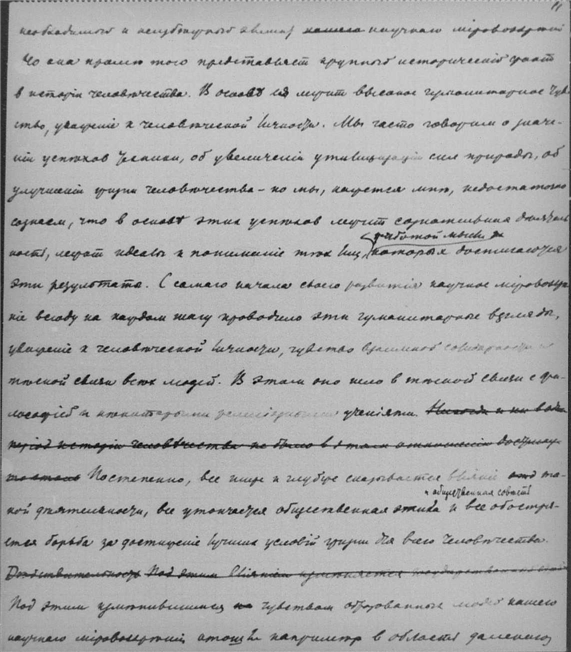 11
необходимых и неизбежных нашего научного мировоззрения
Но она кроме того представляет крупный исторический факт
в истории человечества. В основе ея лежит высокое гуманитарное чув
ство, уважение к человеческой личности. Мы часто говорим о значе-
нии успехов техники, об увеличении утилизации сил природы, об
улучшении жизни человечества - но мы, кажется мне, недостаточно
сознаем, что в основе этих успехов лежит сознательная деятель
ность, лежат идеалы и понимание тех лиц, работой мысли которых достигаются
эти результата. С самого начала своего развития научное мировоззре
ние всюду на каждом шагу проводило эти гуманитарные взгляды,
уважение к человеческой личности, чувство взаимной солидарности и
тесной связи всех людей. В этом оно шло в тесной связи с фи-
лософией и некоторыми религиозными учениями. Никогда и ни в один
период истории человечества не было в этом отношении
Постепенно, все шире и глубже сказывается влияние та-
кой деятельности, все утончается общественная этика и общественная совесть и все обостря-
ется борьба за достижение лучших условий жизни для всего человечества.
Действительность Под этим влиянием изменяется
Под этим изменившимся чувством образованных людей нашего
научного мировоззрения например в области